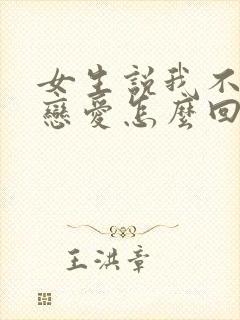 女生説我不
戀愛怎麼回
王洪章